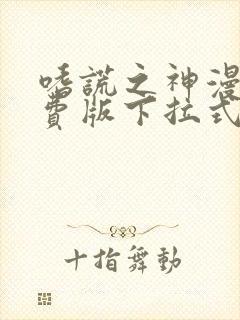 嗜謊之神漫
費版下拉式
十指舞動